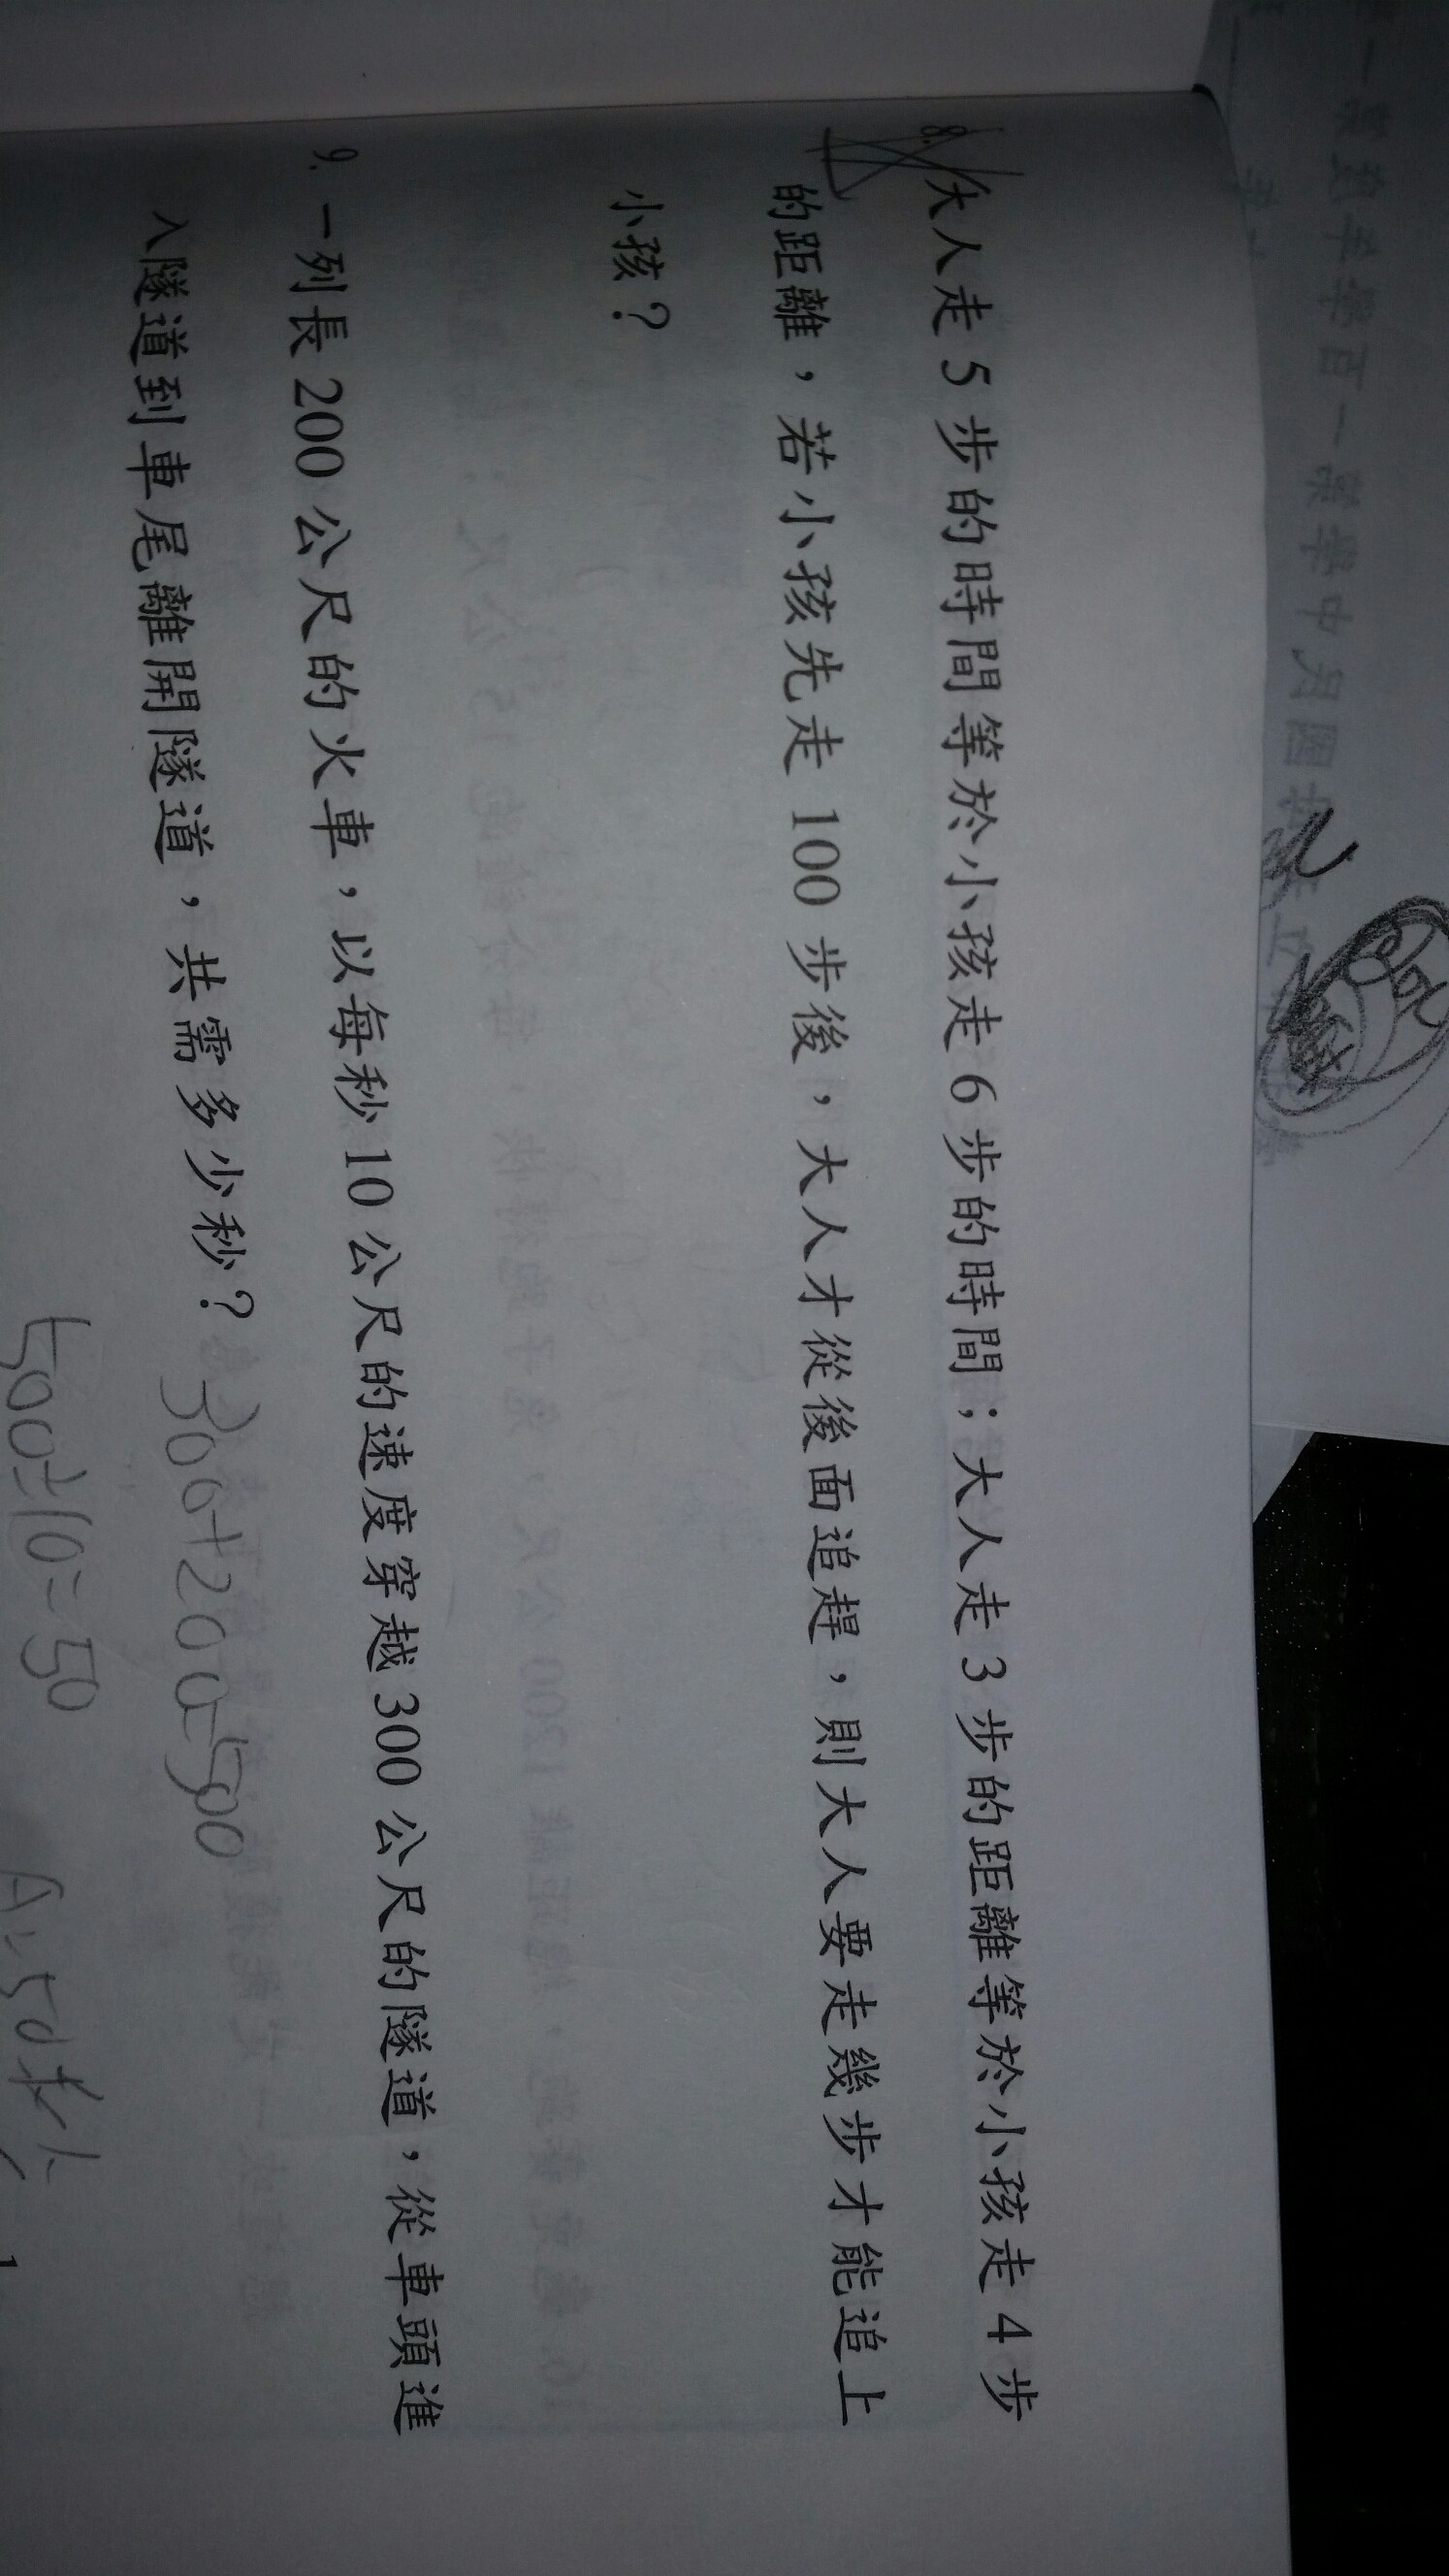 8. 大人走 5 步的時間等於小孩走 6 步的時間；大人走 3 步的距離等於小孩走 4 步
的距離，若小孩先走 100 步後，大人才從後面追趕，則大人要走幾步才能追上
小孩？
9. 一列長 200 公尺的火車，以每秒 10 公尺的速度穿越 300 公尺的隧道，從車頭進
入隧道到車尾離開隧道，共需多少秒？
300+200=500
500÷10=50
A:50秒